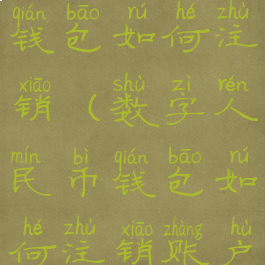 qián bāo rú hé zhù
钱包如何注
xiāo shù zì rén
销（数字人
mín bì qián bāo rú
民币钱包如
hé zhù xiāo zhàng hù
何注销账户